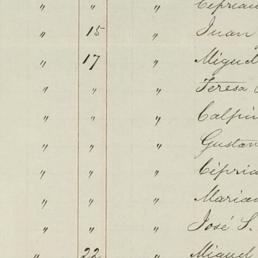 " " " Ciprian
" 15 " Juan
" 17 " Miguel
" " " Teresa
" " "
" " " Gustav
" " " Cipria
" " " Marian
" " " José S.
" 22 " Miguel